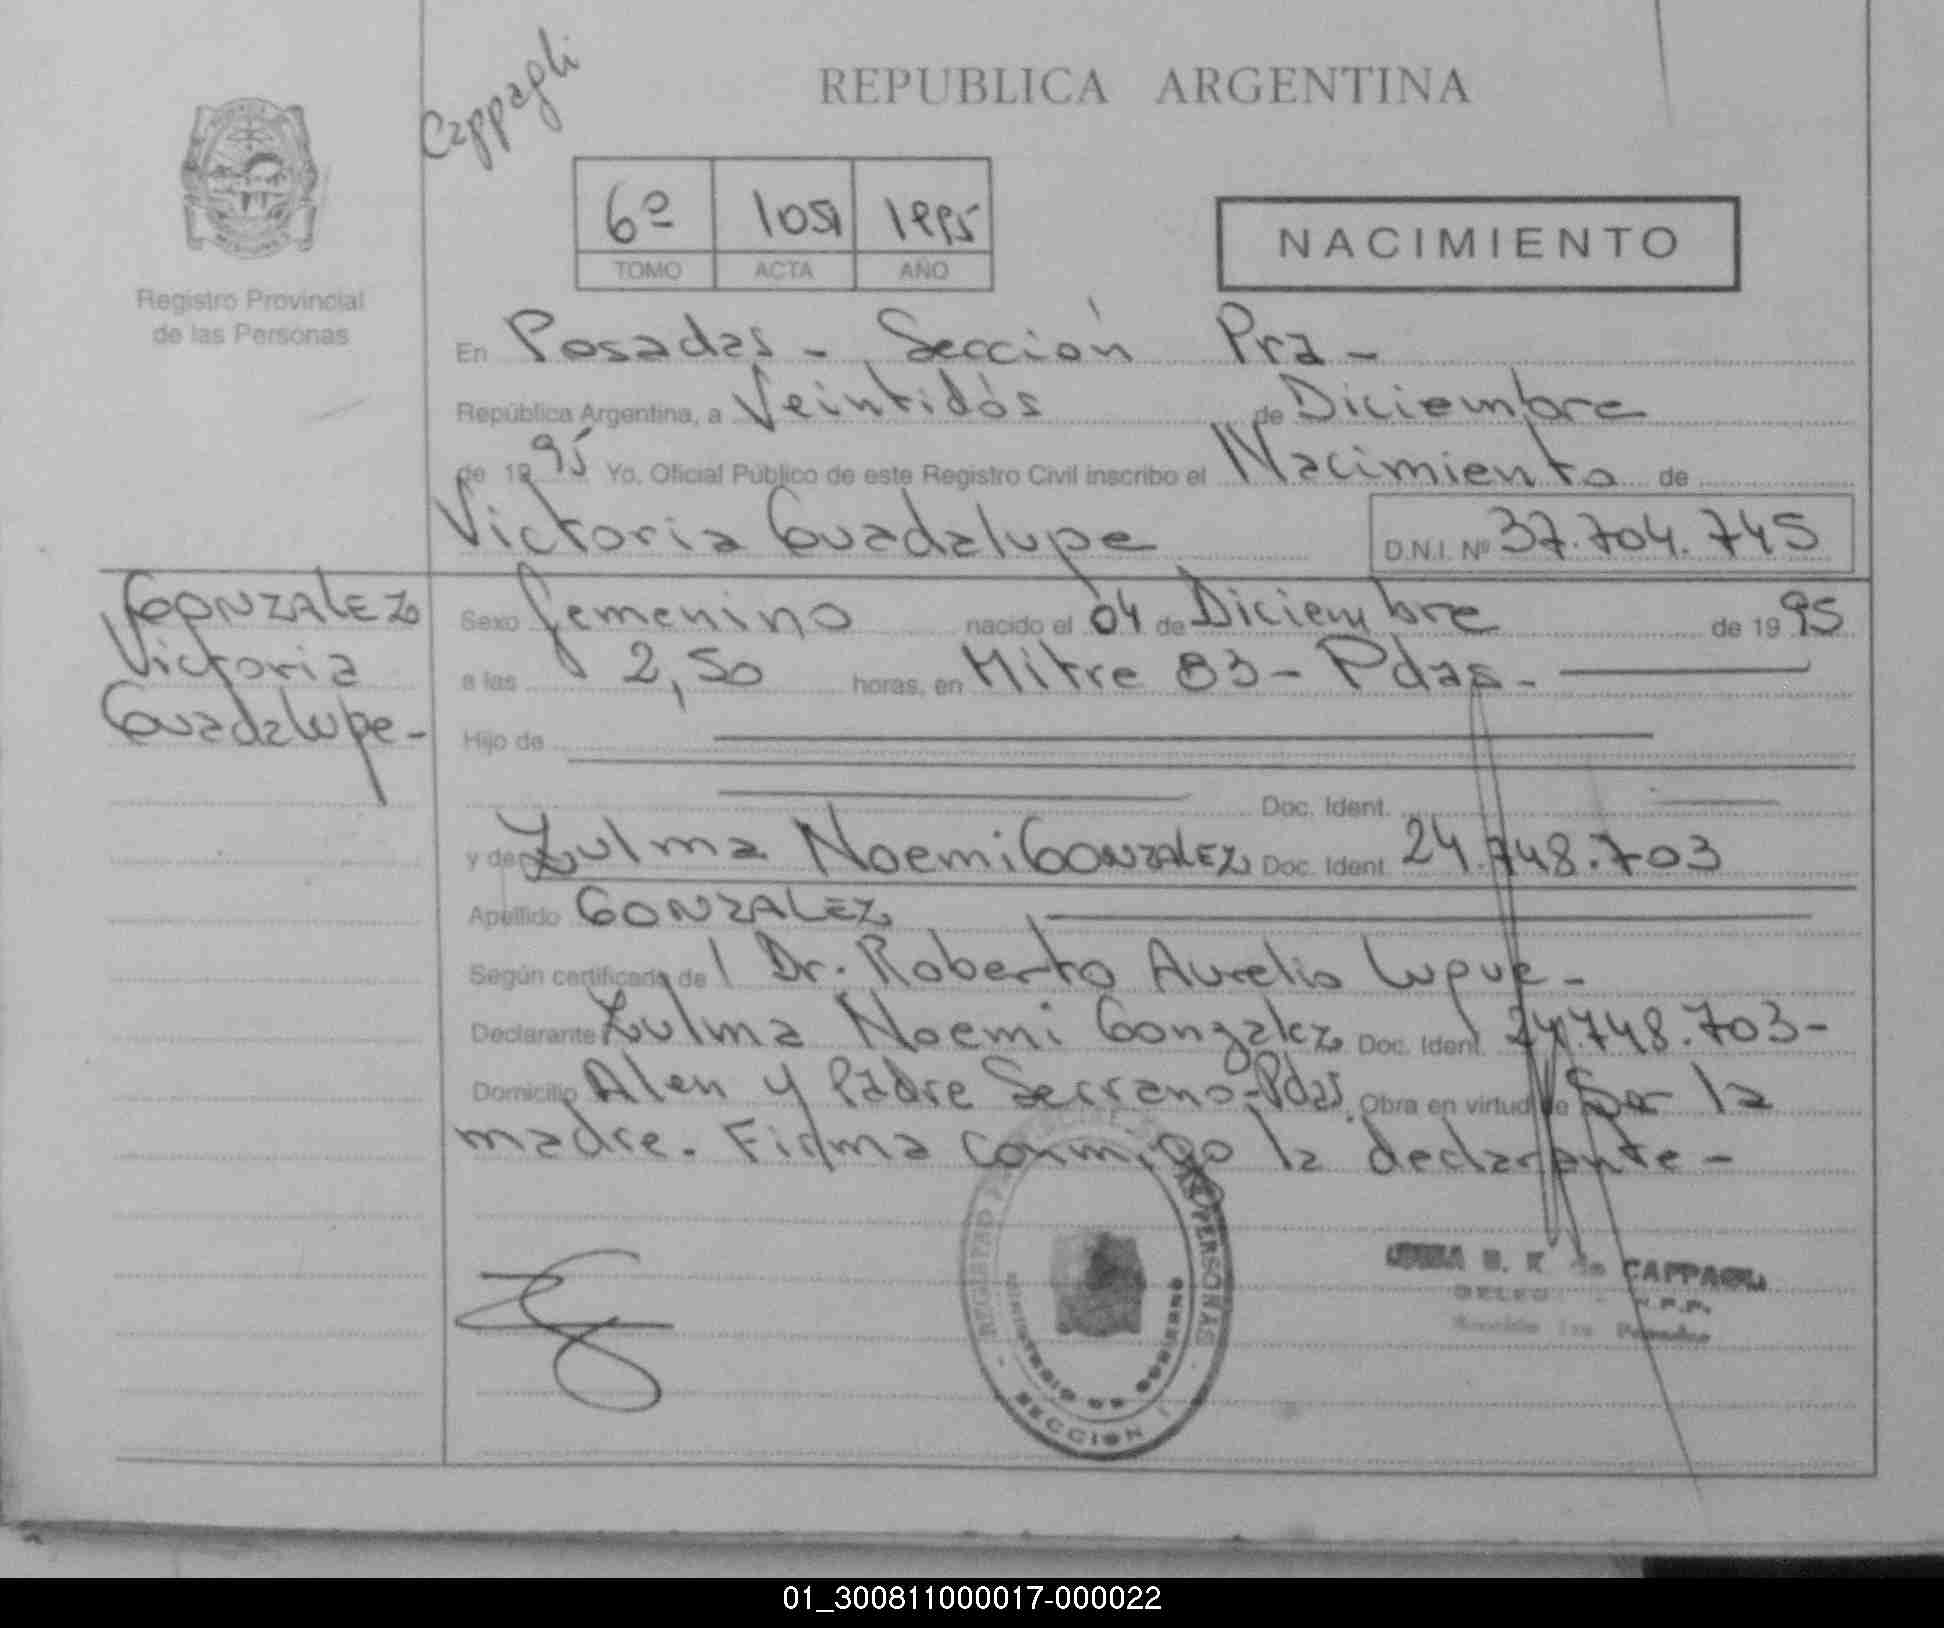 Cappagli
REPUBLICA ARGENTINA
6º 1051 1995
TOMO ACTA AÑO
NACIMIENTO
Registro Provincial
de las Personas
En Posadas - Sección Pra -
República Argentina, a Veintidós de Diciembre
de 1995 Yo, Oficial Público de este Registro Civil inscribo el Nacimiento de
Victoria Guadalupe
D.N.I. Nº 37.704.745
GONZALEZ
Victoria
Guadalupe -
Sexo femenino nacido el 04 de Diciembre de 1995
a las 2,50 horas, en Mitre 83 - Pdas -
Hijo de
Doc. Ident.
y de Zulma Noemi GONZALEZ Doc. Ident. 24.748.703
Apellido GONZALEZ
Según certificado de Dr. Roberto Aurelio Luque -
Declarante Zulma Noemi Gonzalez Doc. Ident. 24.748.703 -
Domicilio Alen y Padre Serrano - Pdas. Obra en virtud de Ser la
madre. Firma conmigo la declarante -
REGISTRO PERSONAS
MINISTERIO DE GOBIERNO
SECCION 1
de CAPPAGLI
Sección 1ra Posadas
01_300811000017-000022